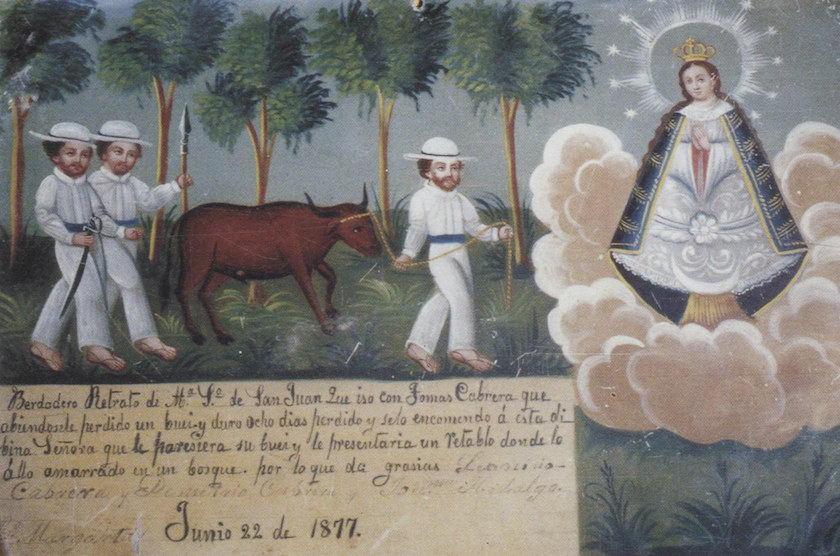 Berdadero Retrato de Nª Sª de San Juan Que iso con Tomas Cabrera que
abiendosele perdido un buei y duro ocho dias perdido y selo encomendo á esta di
bina Señora que le paresiera su buei y le presentaria un retablo donde lo
allo amarrado en un bosque. por lo que da grasias
Cabrera y Cabrera y Hidalgo.
Margarito Junio 22 de 1877.